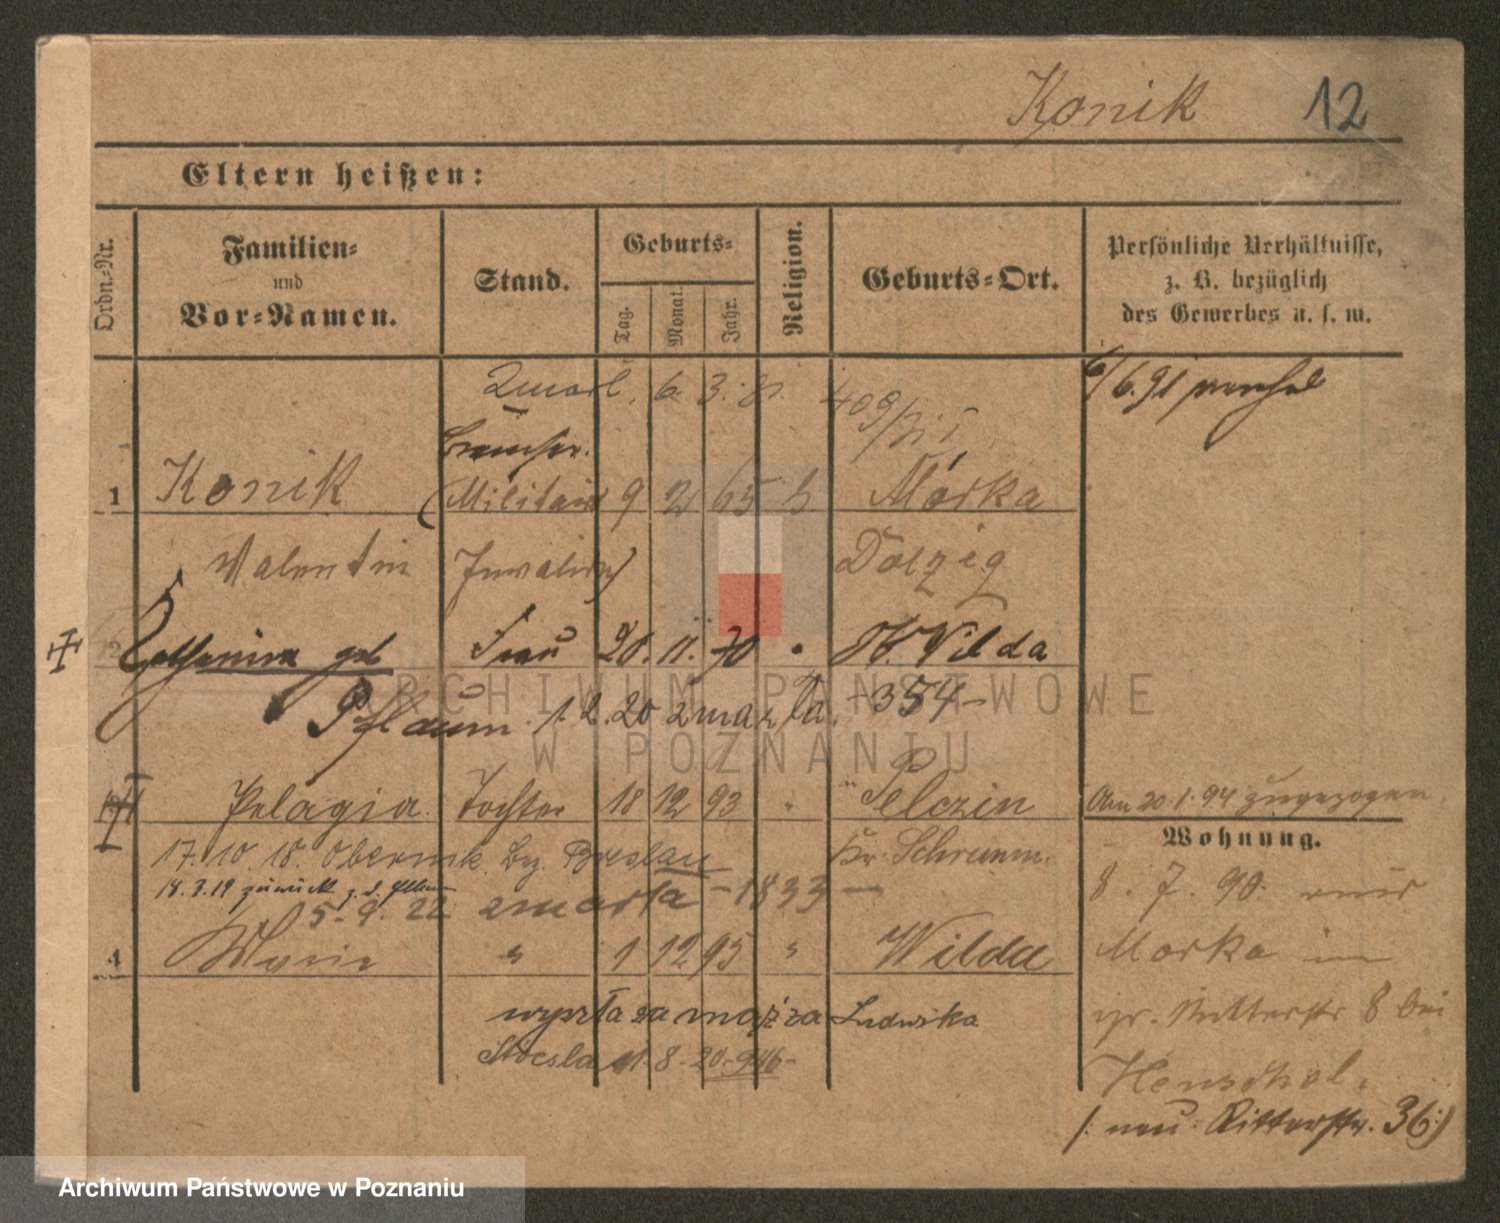 Konik 12
Eltern heißen:
Ordn.-Nr.
Familien-
und
Vor-Namen.
Stand.
Geburts-
Tag.
Monat.
Jahr.
Religion.
Geburts-Ort.
Persönliche Verhältnisse,
z. B. bezüglich
des Gewerbes u. s. w.
Zmarł. 6. 3. 31.
6/6.91
1 Konik (Militair 9 2 65 Mórka
Valentin Invalide) Dolzig
2 Catharina geb Frau 11. 70 O. Wilda
Pflaum 1.2.20 zmarła. -354-
Pelagia Tochter 18 12 93 " Pelczin Am 20.1.94 zugezogen
Kr. Schrimm.
17.10.18. Obernik, Bz. Breslau
18.3.19 zurück z. d. Eltern
5.9.22 zmarła -1833-
4 Marie " 1 12 95 " Wilda
wyszła za mąż za Ludwika
8.20.-946-
Wohnung.
8. 7. 90. aus
Morka in
Ritterstr 8 bei
Henschel.
(: neu Ritterstr. 36:)
ARCHIWUM PAŃSTWOWE
W POZNANIU
Archiwum Państwowe w Poznaniu